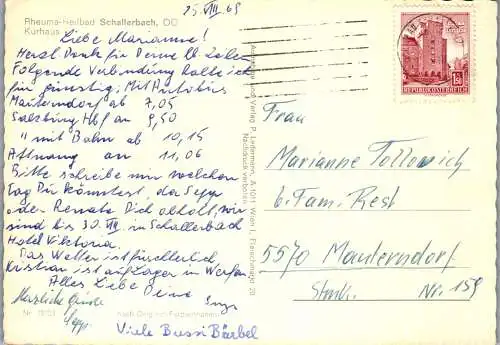 25.VIII.69
Rheuma-Heilbad Schallerbach, OÖ
Kurhaus
Liebe Marianne!
Herzl. Dank für Deine lb. Zeilen
Folgende Verbindung halte ich
für günstig: Mit Autobus
Mauterndorf ab 7,05
Salzburg Hbf an 9,50
" mit Bahn ab 10,15
Attnang an 11,06
Bitte schreibe mir welchen
Tag Du könntest, da Sepp
oder Renate Dich abholt, wir
sind bis 30.VIII. in Schallerbach
Hotel Viktoria.
Das Wetter ist fürchterlich
Kristian ist auf Lager in Werfen.
Alles Liebe Deine
Inge
Herzliche Grüße
Sepp
Viele Bussi Bärbel
Nr.
nach Orig.
Aufnahme und Verlag P. Ledermann, A 1011 Wien I, Fleischmarkt 20
Nachdruck verboten
REPUBLIK ÖSTERREICH
Frau
Marianne
b. Fam. Rest
5570 Mauterndorf
Nr. 159